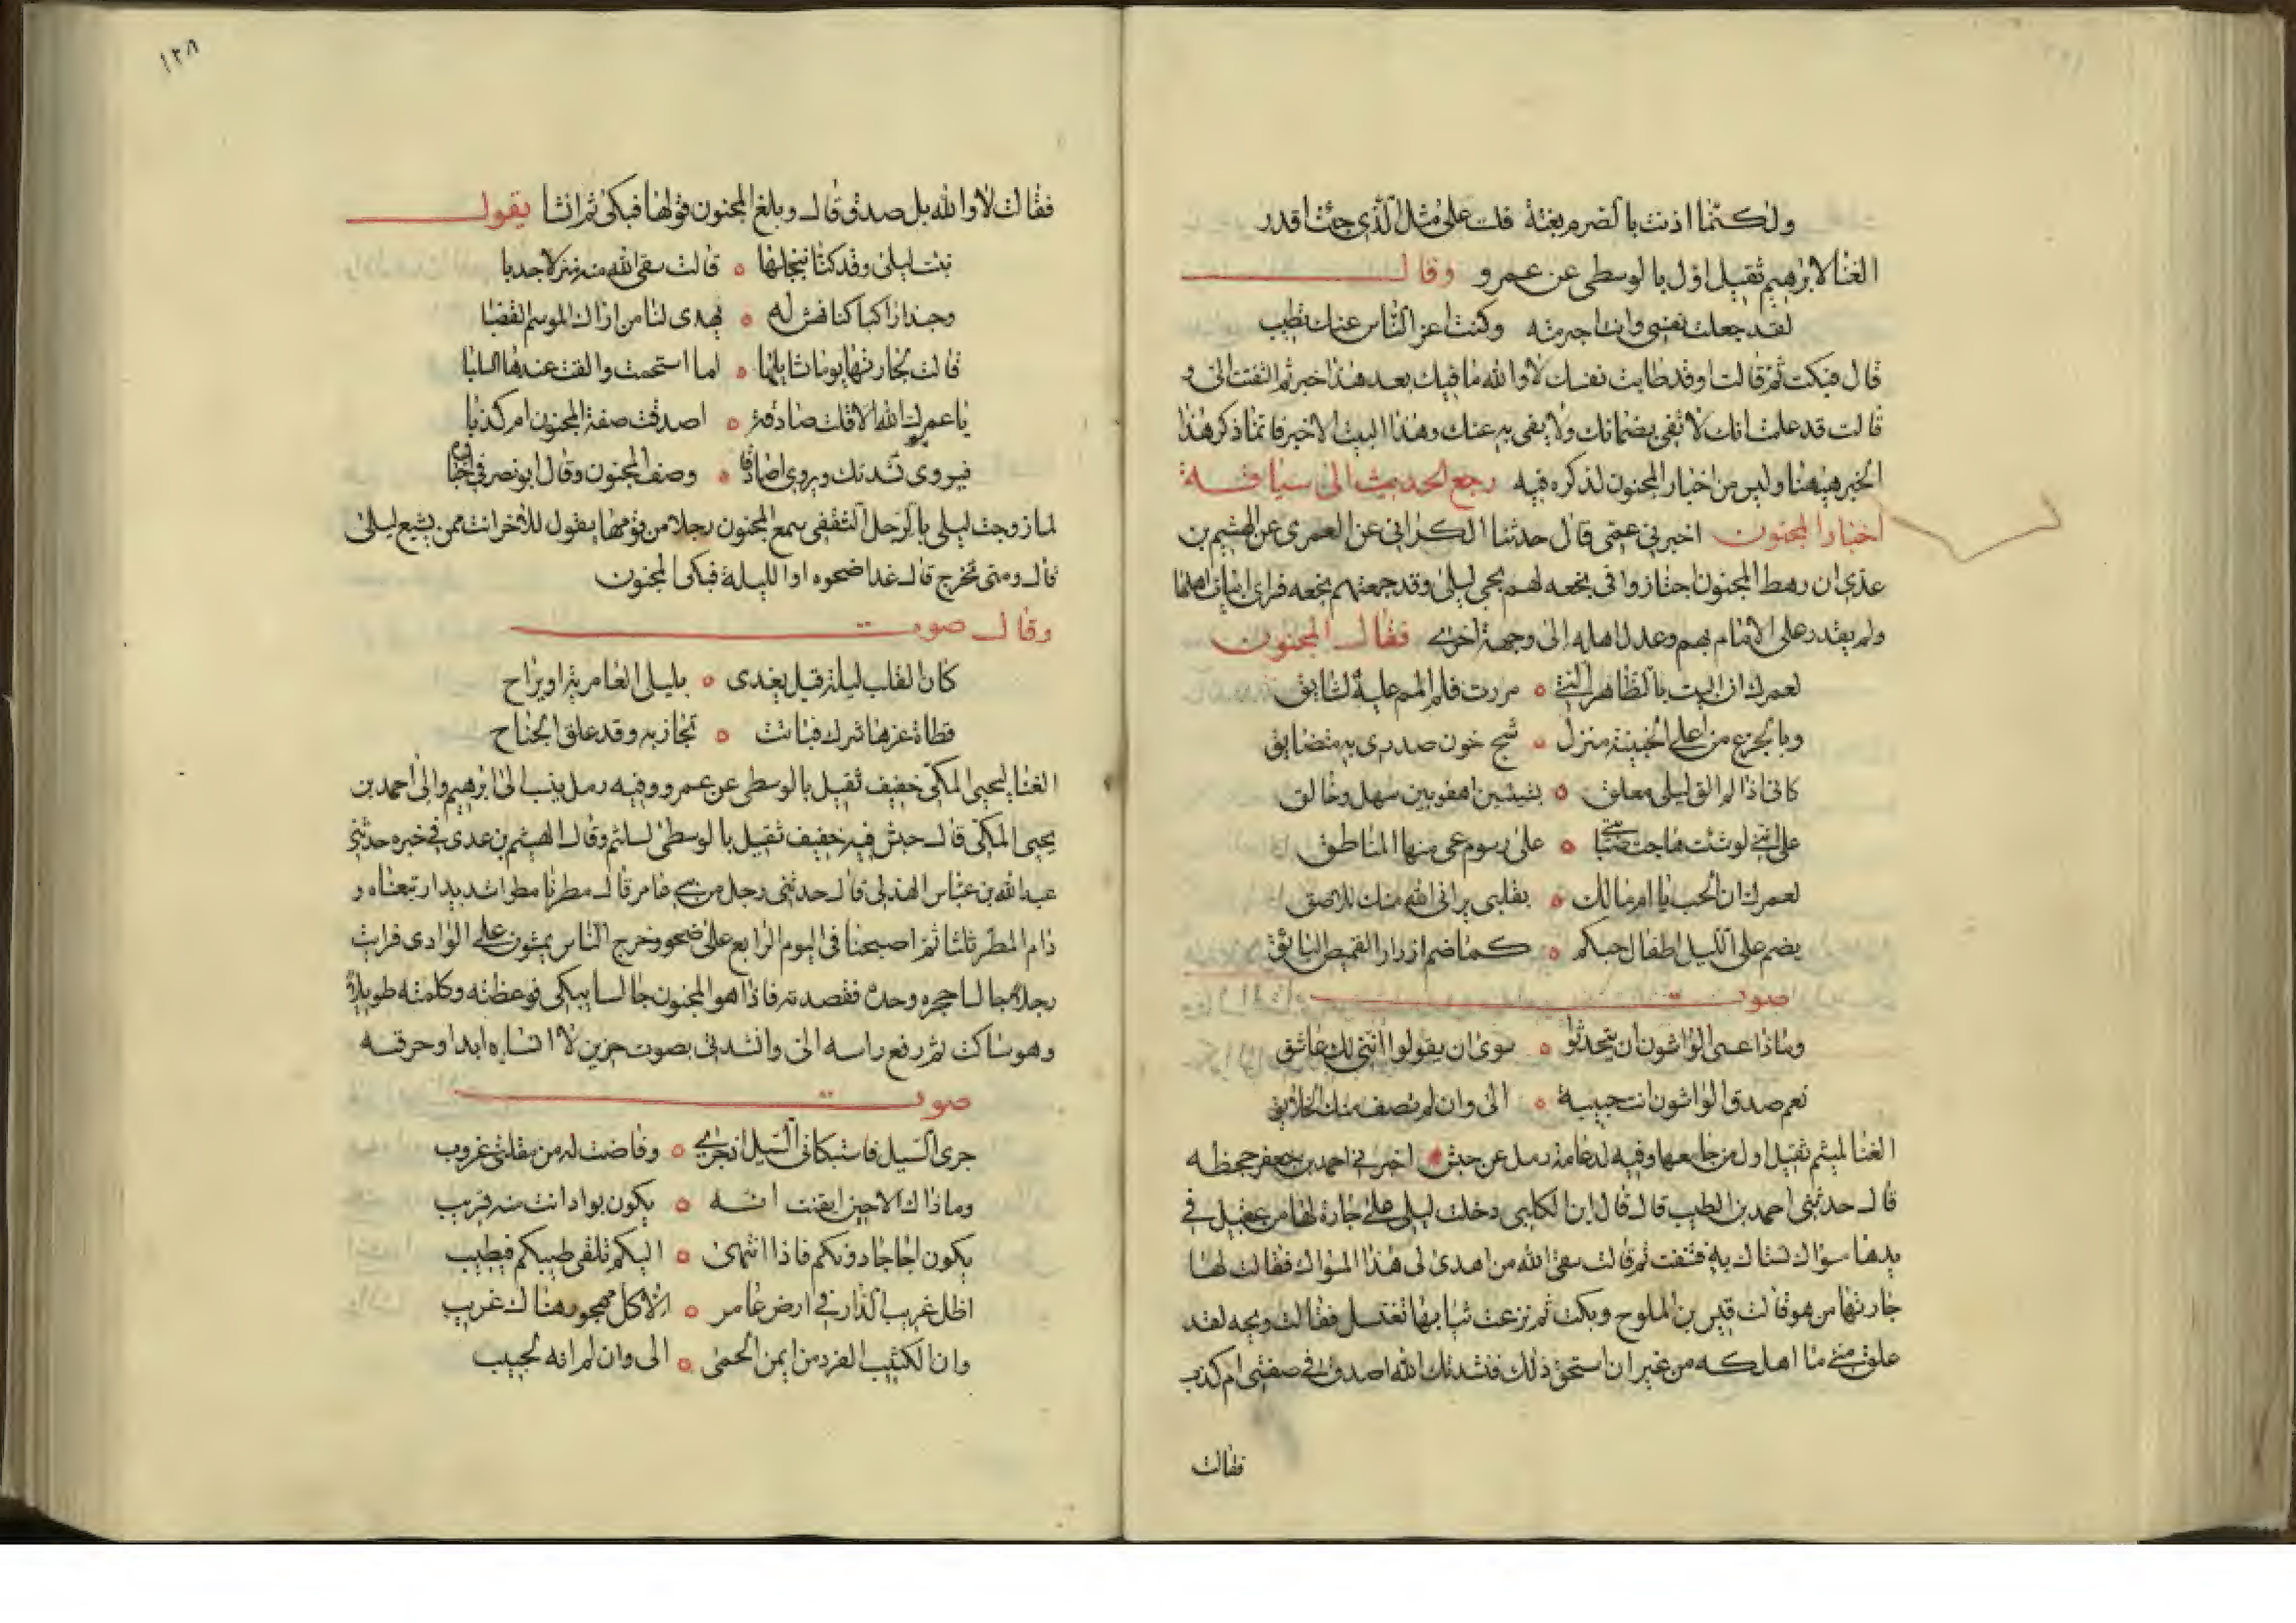 ولكنما اذنت بالصرم بغتة فلت على مثل الذي جئت اقدر
الغنا لابرهيم ثقيل اول بالوسطى عن عمرو وقال
لقد جعلت نفسي وانت اجترمته وكنت اعز الناس عنك تطيب
قال فبكت ثم قالت اوقد طابت نفسك لا والله ما فيك بعد هذا خير ثم التفتت الى و
قالت قد علمت انك لا تفي بضمانك ولا يفي به عنك وهذا البيت الاخير فانما ذكر هذا
الخبر هيهنا وليس من اخبار المجنون لذكره فيه رجع الحديث الى سياقة
اخبار المجنون اخبرني عمي قال حدثنا الكراني عن العمري عن الهثيم بن
عدي ان رهط المجنون اجتازوا في نجعه لهم بحي ليلى وقد جمعتهم نجعه فراى ابيات اهلها
ولم يقدر على الالمام بهم وعدل اهله الى وجهة اخرى فقال المجنون
لعمرك ان البيت بالظاهر الذي مررت فلم المم عليه لشايق
وبالجزع من اعلى الجنينة منزل شج خون صدري به متضايق
كاني اذا لم الق ليلى معلق بسبين اهفو بين سهل وحالق
على انني لو شئت هاجت صبابتي على رسوم عي منها المناطق
لعمرك ان الحب يا ام مالك بقلبي براني الله منك للاصق
يضم على الليل اطفال حبكم كما ضم ازرار القميص البنائق
صوت
وماذا عسى الواشون ان يتحدثوا سوى ان يقولوا انني لك عاشق
نعم صدق الواشون انت حبيبة الى وان لم تصف منك الخلايق
الغنا لميثم ثقيل اول من جامعها وفيه لدعامة رمل عن حبش اخبرني احمد بن جعفر جحظه
قال حدثني احمد بن الطيب قال قال ابن الكلبي دخلت ليلى على جارة لها من عقيل في
يدها سواك تستاك به فتنفست ثم قالت سقى الله من اهدى لي هذا المسواك فقالت لها
جارتها من هو قالت قيس بن الملوح وبكت ثم نزعت ثيابها تغتسل فقالت ويحه لقد
علق مني ما اهلكه من غير ان استحق ذلك فنشدتك الله اصدق في صفتي ام كذب
فقالت
١٢٨
فقالت لا والله بل صدق قال وبلغ المجنون قولها فبكى ثم انشا يقول
نبئت ليلى وقد كنا نبخلها قالت سقى الله منزلا جدبا
وحبذا راكبا كنا نهش له يهدى لنا من اراك الموسم القضبا
قالت لجارتها يوما تسايلها لما استحمت والقت عندها السلبا
يا عمرك الله الا قلت صادقة اصدقت صفة المجنون ام كذبا
فيروى نشدتك ويروى اصادقا وصف المجنون وقال ابو نصر في اخباره
لما زوجت ليلى بالرجل الثقفي سمع المجنون رجلا من قومها يقول للآخر انت ممن يشيع ليلى
قال ومتى تخرج قال غدا ضحوه او الليلة فبكى المجنون
وقال صوت
كان القلب ليلة قيل يغدى بليلى العامرية او يراح
قطاة عزها شرك فباتت تجاذبه وقد علق الجناح
الغنا ليحيى المكي خفيف ثقيل بالوسطى عن عمرو وفيه رمل ينسب الى ابرهيم والى احمد بن
يحيى المكي قال حبش فيه خفيف ثقيل بالوسطى لسليم وقال الهيثم بن عدي في خبره حدثني
عبد الله بن عباس الهذلي قال حدثني رجل من بني عامر قال مطرنا مطرا شديدا ربعناه و
دام المطر ثلثا ثم اصبحنا في اليوم الرابع على ضحو وخرج الناس يمشون على الوادي فرايت
رجلا جالسا حجره وحده فقصدته فاذا هو المجنون جالسا يبكي فوعظته وكلمته طويلا
وهو ساكت ثم رفع راسه الى وانشدني بصوت حزين لا انساه ابدا وحرقه
صوت
جرى السيل فاستبكاني السيل اذ جرى وفاضت له من مقلتي غروب
وماذاك الا حين ايقنت انه يكون بواد انت منه قريب
يكون اجاجا دونكم فاذا انتهى اليكم تلقى طيبكم فيطيب
اظل غريب الدار في ارض عامر الا كل مهجور هناك غريب
وان الكثيب الفرد من ايمن الحمى الى وان لم اته لحبيب